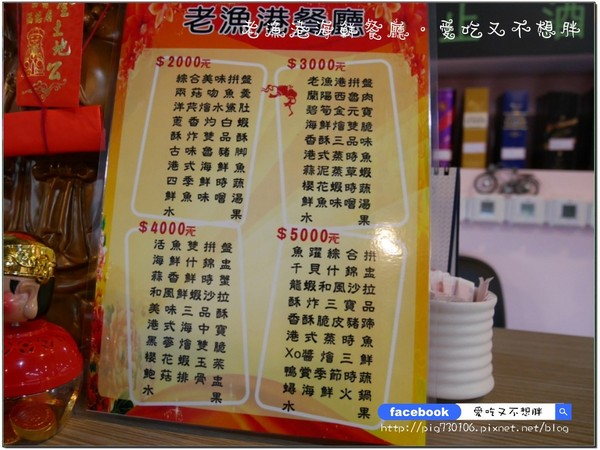 老漁港餐廳
老漁港海鮮餐廳。愛吃又不想胖
土地公
止 酒
$2000元
綜合美味拼盤
兩菇吻魚羹
洋芹燴水鯊肚
蔥香灼白蝦
酥炸雙品
古味魯豬腳
港式海鮮魚
四季時蔬
鮮魚味噌湯
水果
$3000元
老漁港拼盤
蘭陽西魯肉
碧筍金元寶
海鮮脆
酥炸三品味
港式蒸時魚
蒜泥蒸草蝦
櫻花蝦時蔬
鮮魚味噌湯
水果
$4000元
活魚雙拼盤
海鮮什錦盅
蒜香鮮蟹
和風蝦沙拉
水果
$5000元
魚躍綜合拼
千貝什錦盅
龍蝦和風沙拉
香酥炸三寶品
香酥脆皮豬蹄
港式蒸時魚
Xo醬燴三鮮
鴨賞季節時蔬
海鮮火鍋
水果
facebook 愛吃又不想胖
http://pig730106.pixnet.net/blog